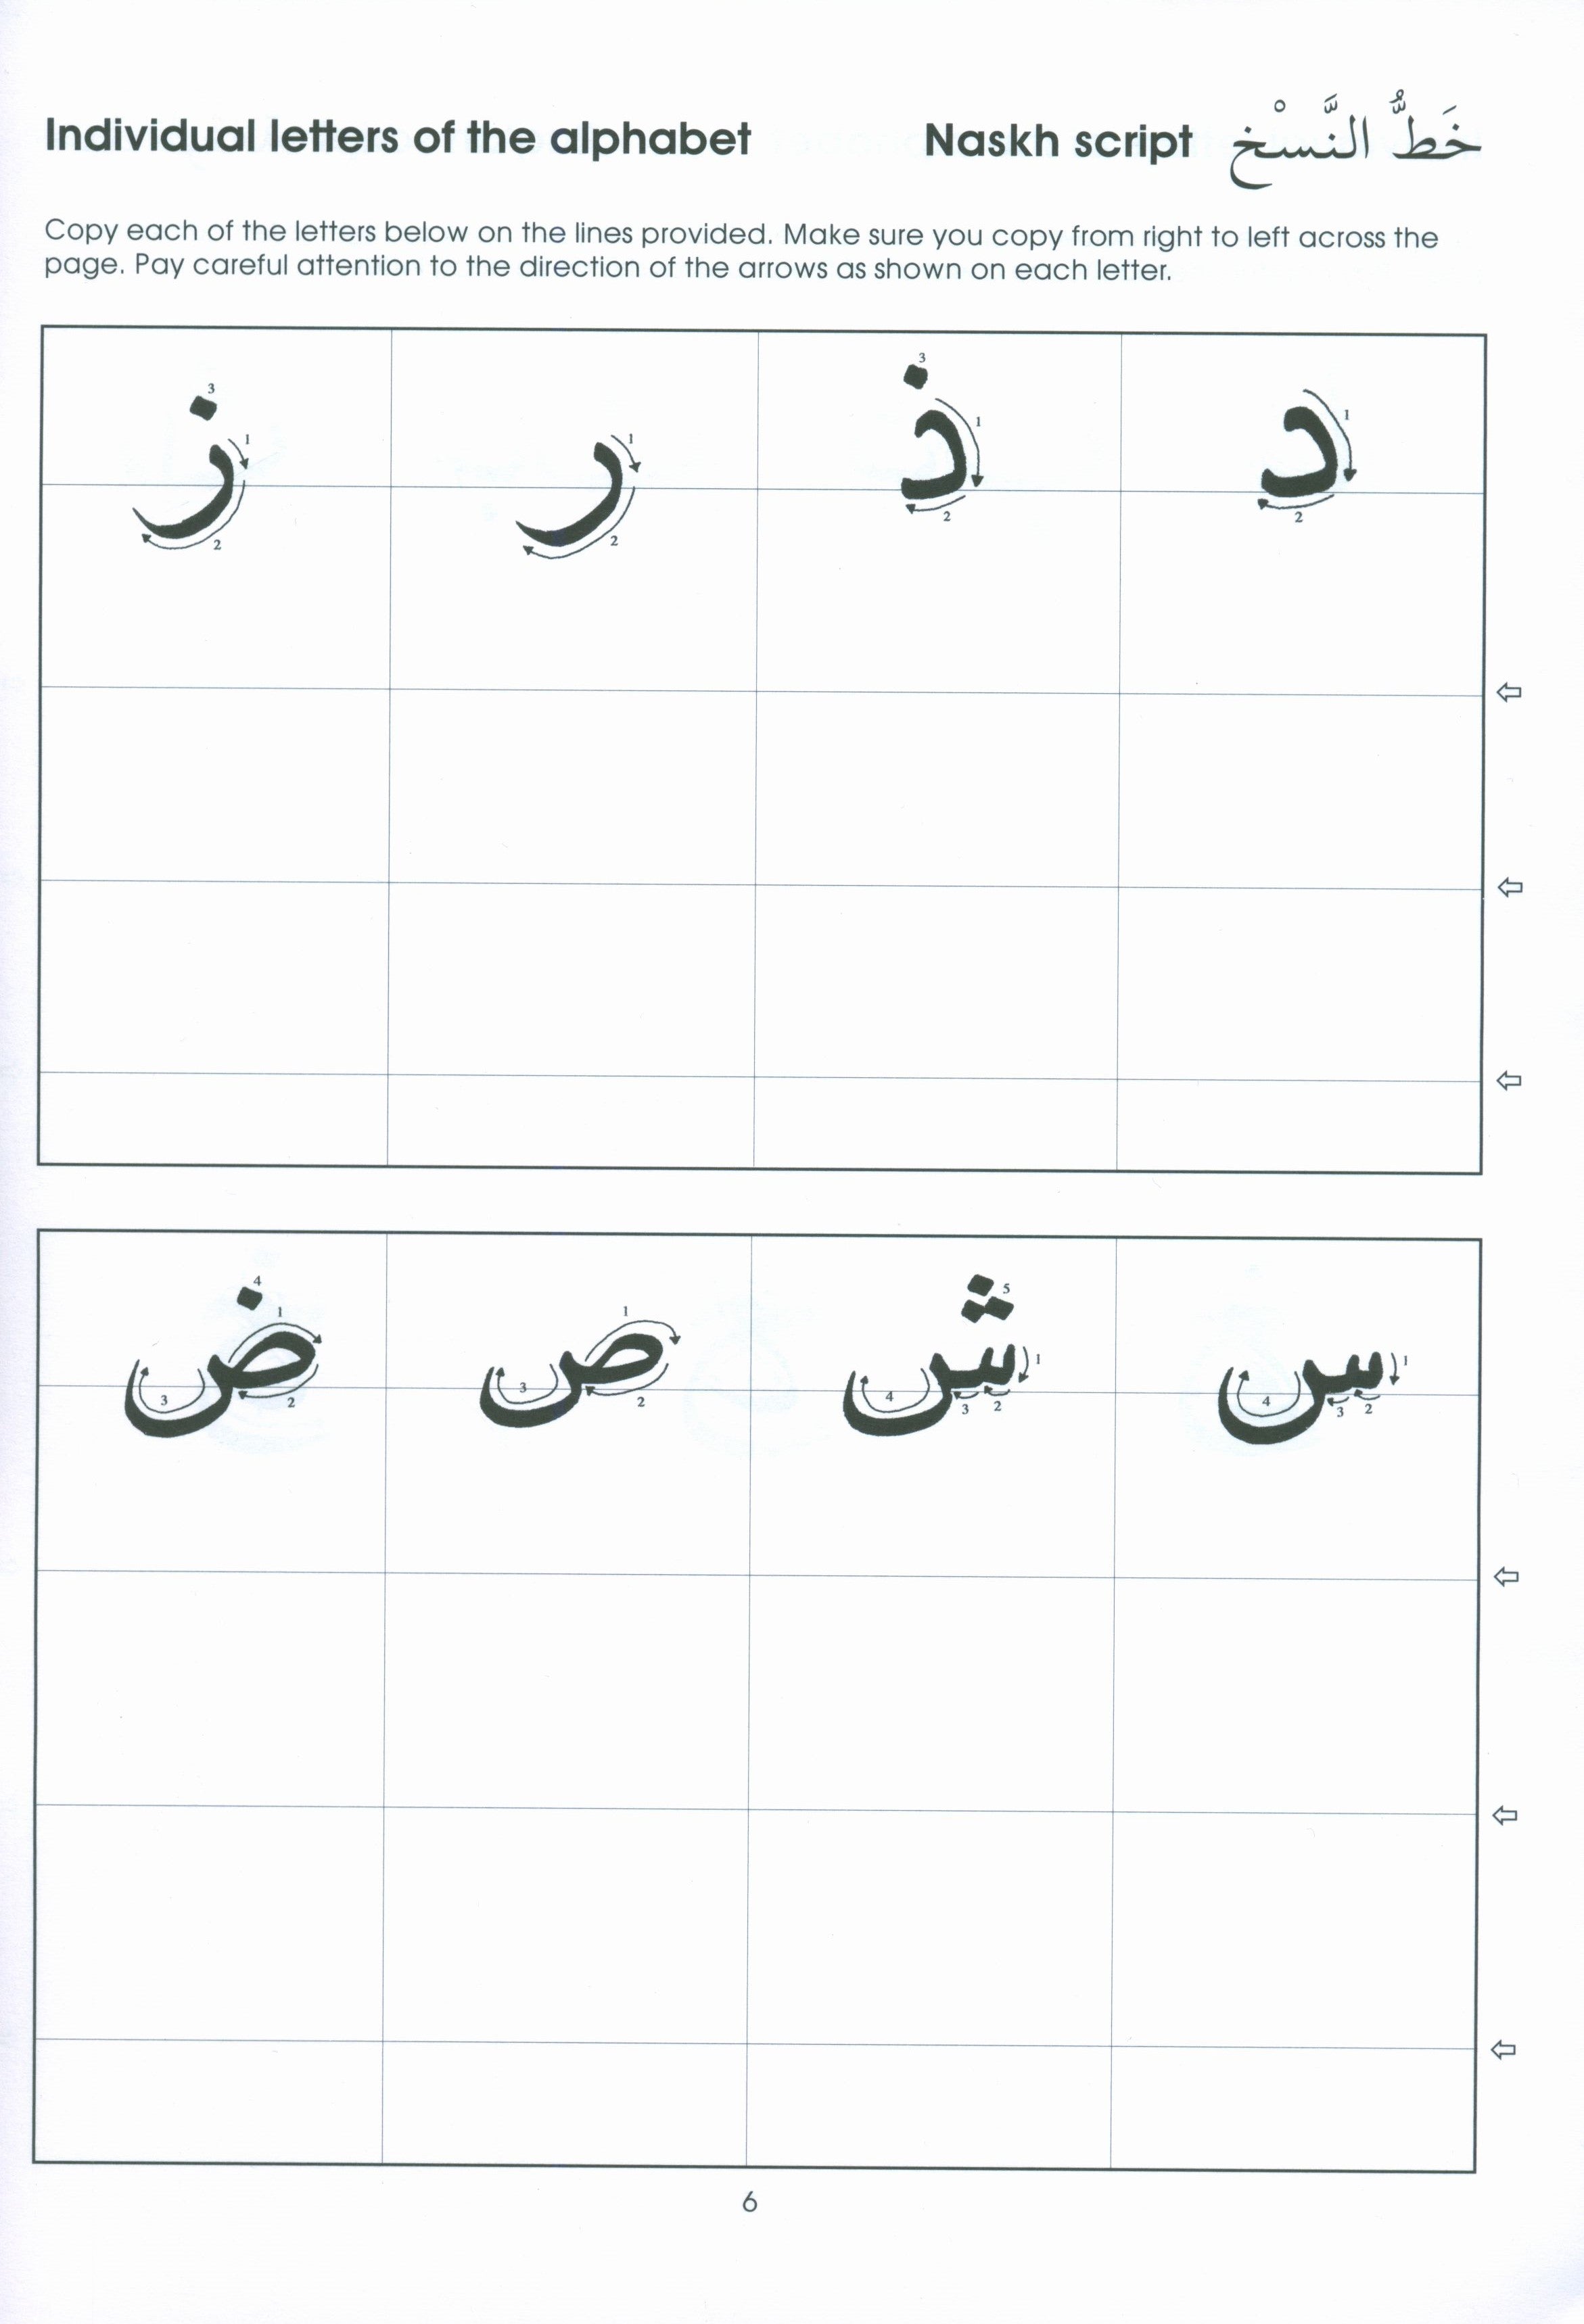 Individual letters of the alphabet
Naskh script خَطُّ النَّسْخ
Copy each of the letters below on the lines provided. Make sure you copy from right to left across the
page. Pay careful attention to the direction of the arrows as shown on each letter.
د 1 2
ذ 1 2 3
ر 1 2
ز 1 2 3
س 1 2 3 4
ش 1 2 3 4 5
ص 1 2 3
ض 1 2 3 4
6